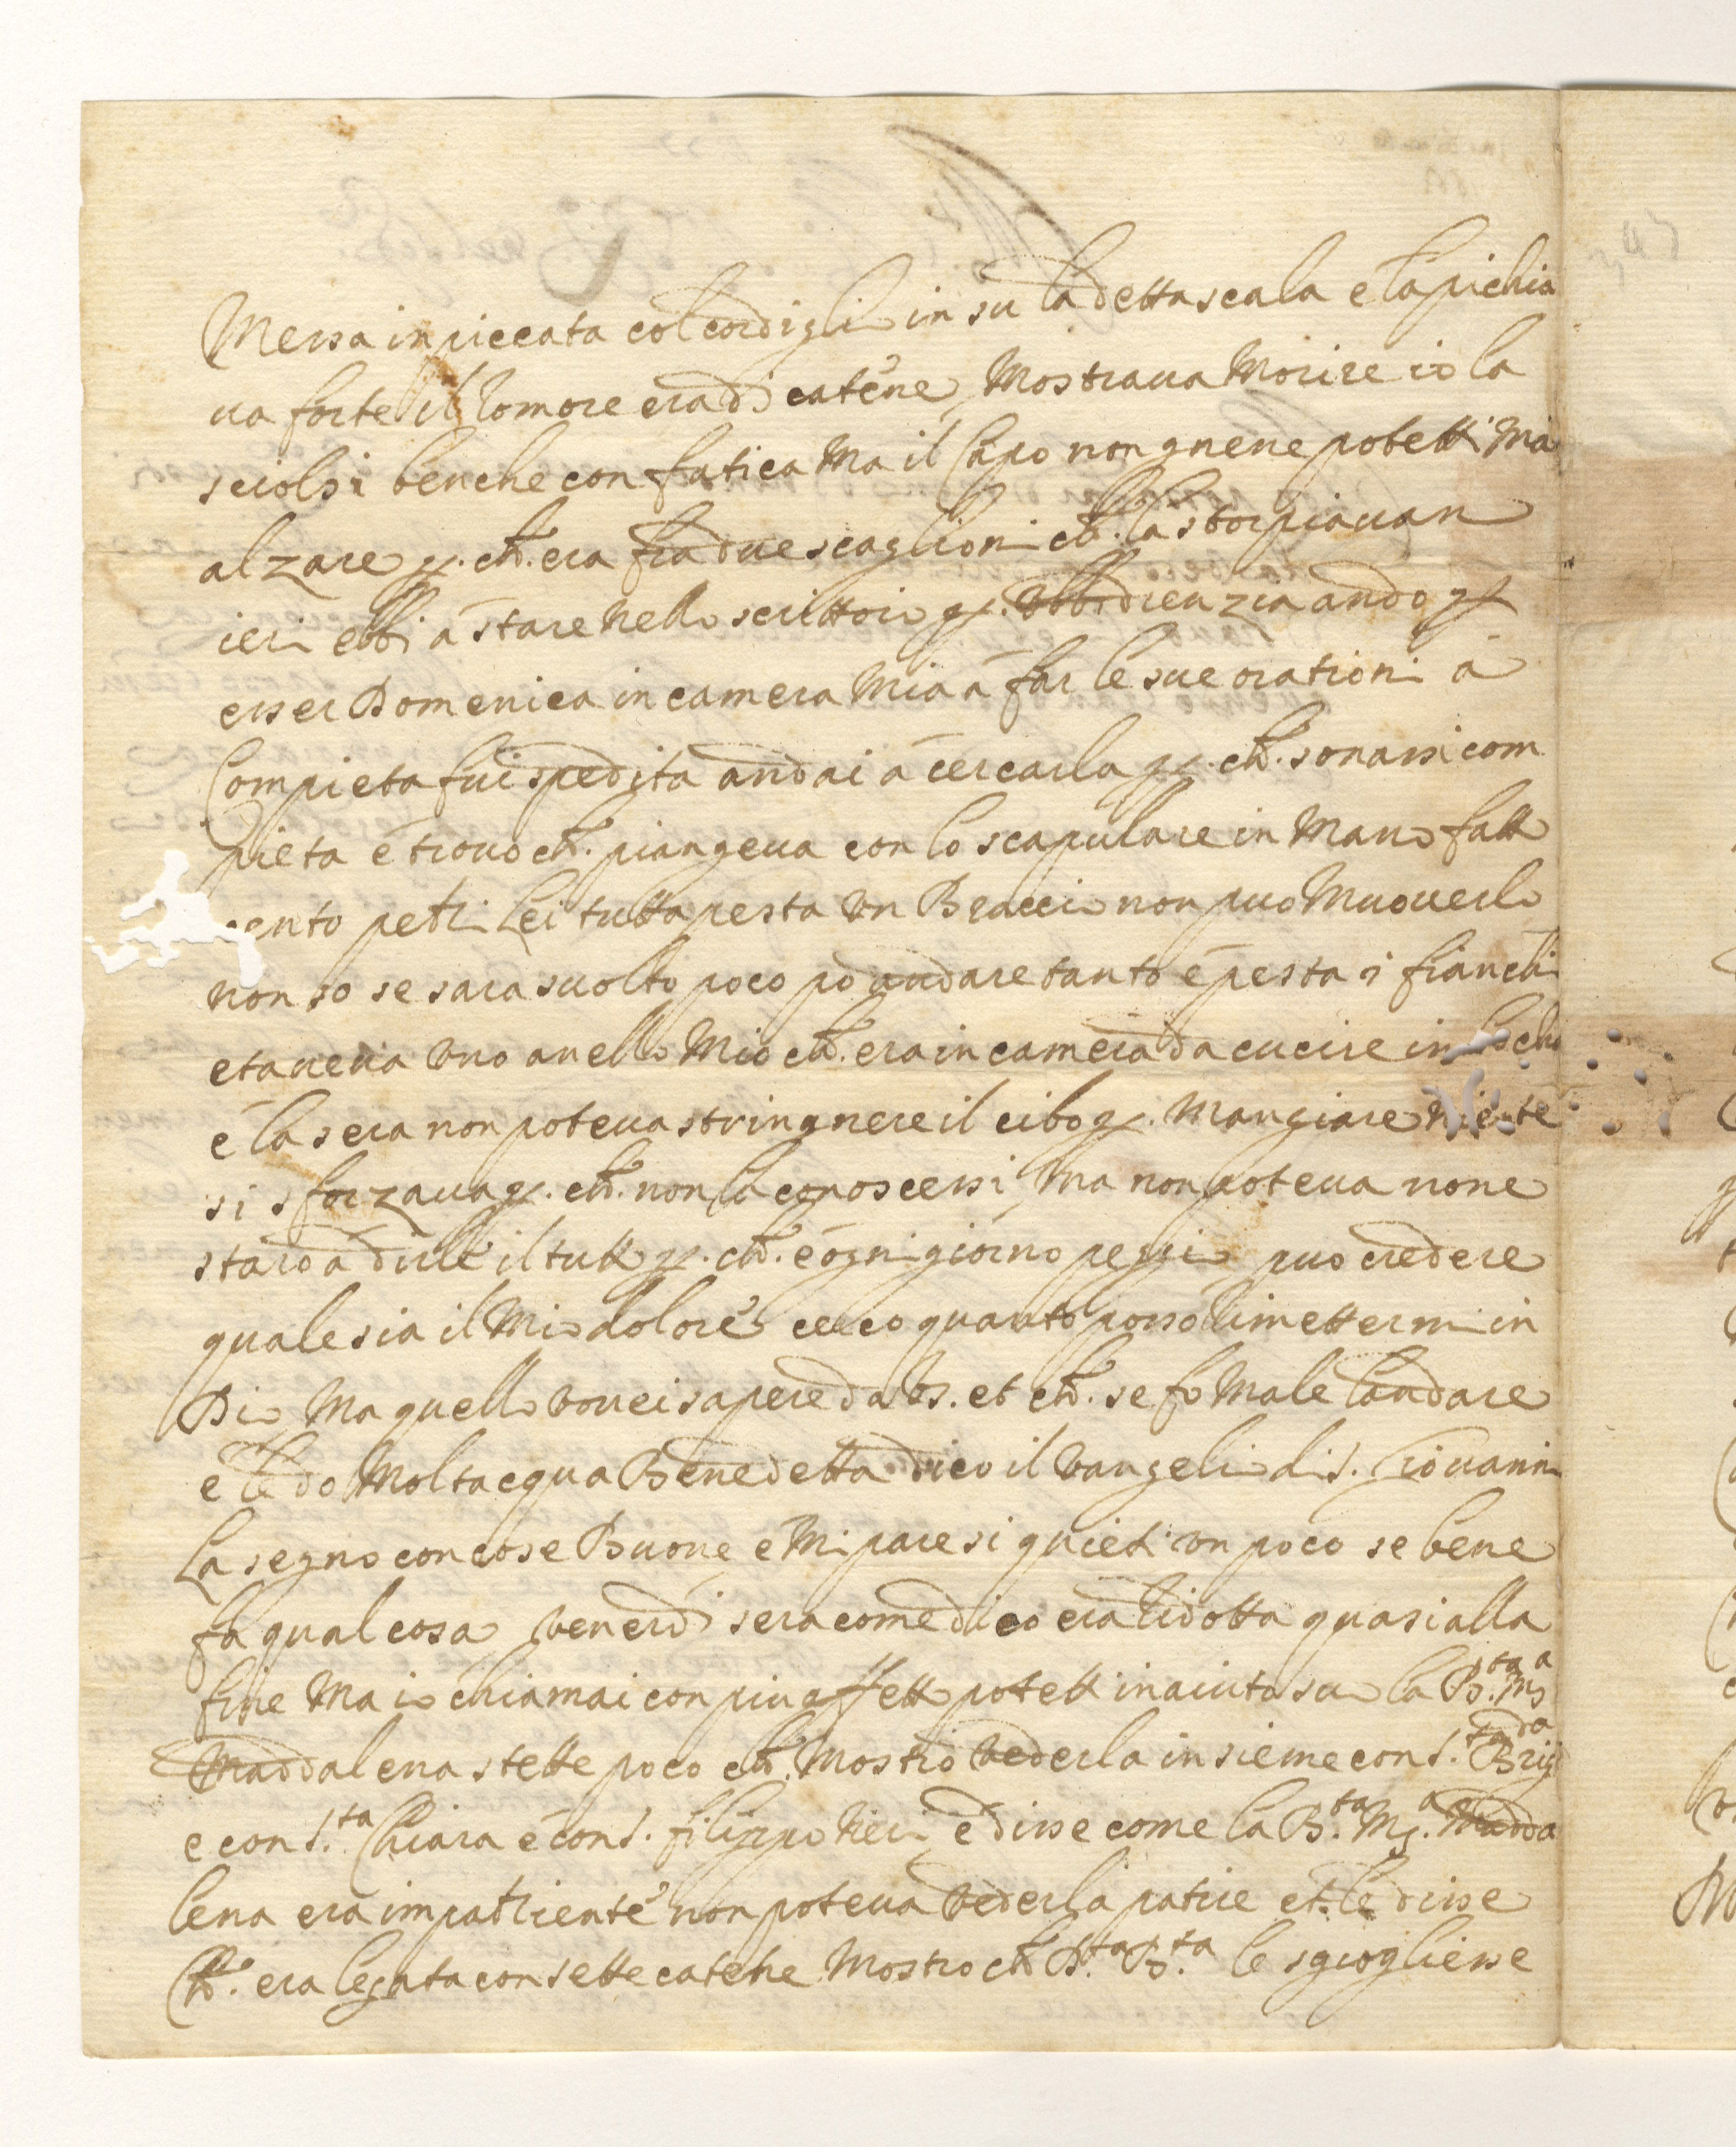 Messa in piccata col cordiglio in su la detta scala e la pichia
va forte il romore era di catene Mostrava Morire io la
sciolsi benche con fatica Ma il Capo non gnene potetti Mai
alzare p. ch. era fra due scaglioni ch. la storpiavan
ieri ebbi à stare nello scrittoio p. Vbbidienzia andò p
esser Domenica in camera Mia à far le sue orationi à
Compieta fui spedita andai à cercarla p. ch. sonassi com
pieta è trovo ch. piangeva con lo scapulare in Mano fatto
cento pezi Lei tutta pesta vn Braccio non può Muoverlo
non so se sara svolto poco pò andare tanto è pesta i fianchi
et aveva vno anello Mio ch. era in camera da cucire in
è la sera non poteva stringnere il cibo p. Mangiare niente
si sforzava p. ch. non la conoscessi Ma non poteva none
starò à dirle il tutto p. ch. è ogni giorno peggio può credere
quale sia il Mio dolore cerco quanto posso rimettermi in
Dio Ma quello vorrei sapere da Vs. et ch. se fo Male landare
e le do Molta cqua Benedetta dico il vangelio di S. Giovanni
La segno con cose Buone e Mi pare si quieti vn poco se bene
fa qual cosa venerdi sera come dico era ridotta quasi alla
fine Ma io chiamai con piu affetto potetti in aiuto suo la B.ta M.a
Maddalena stette poco ch. Mostrò vederla insieme con S.ta Brig.da
e con S.ta Chiara e con S. filippo Neri e disse come la B.ta M.a Madda
lena era impatiente non poteva vederla patire et le disse
Ch. era legata con sette catene Mostrò ch S.ta B.ta le sciogliesse